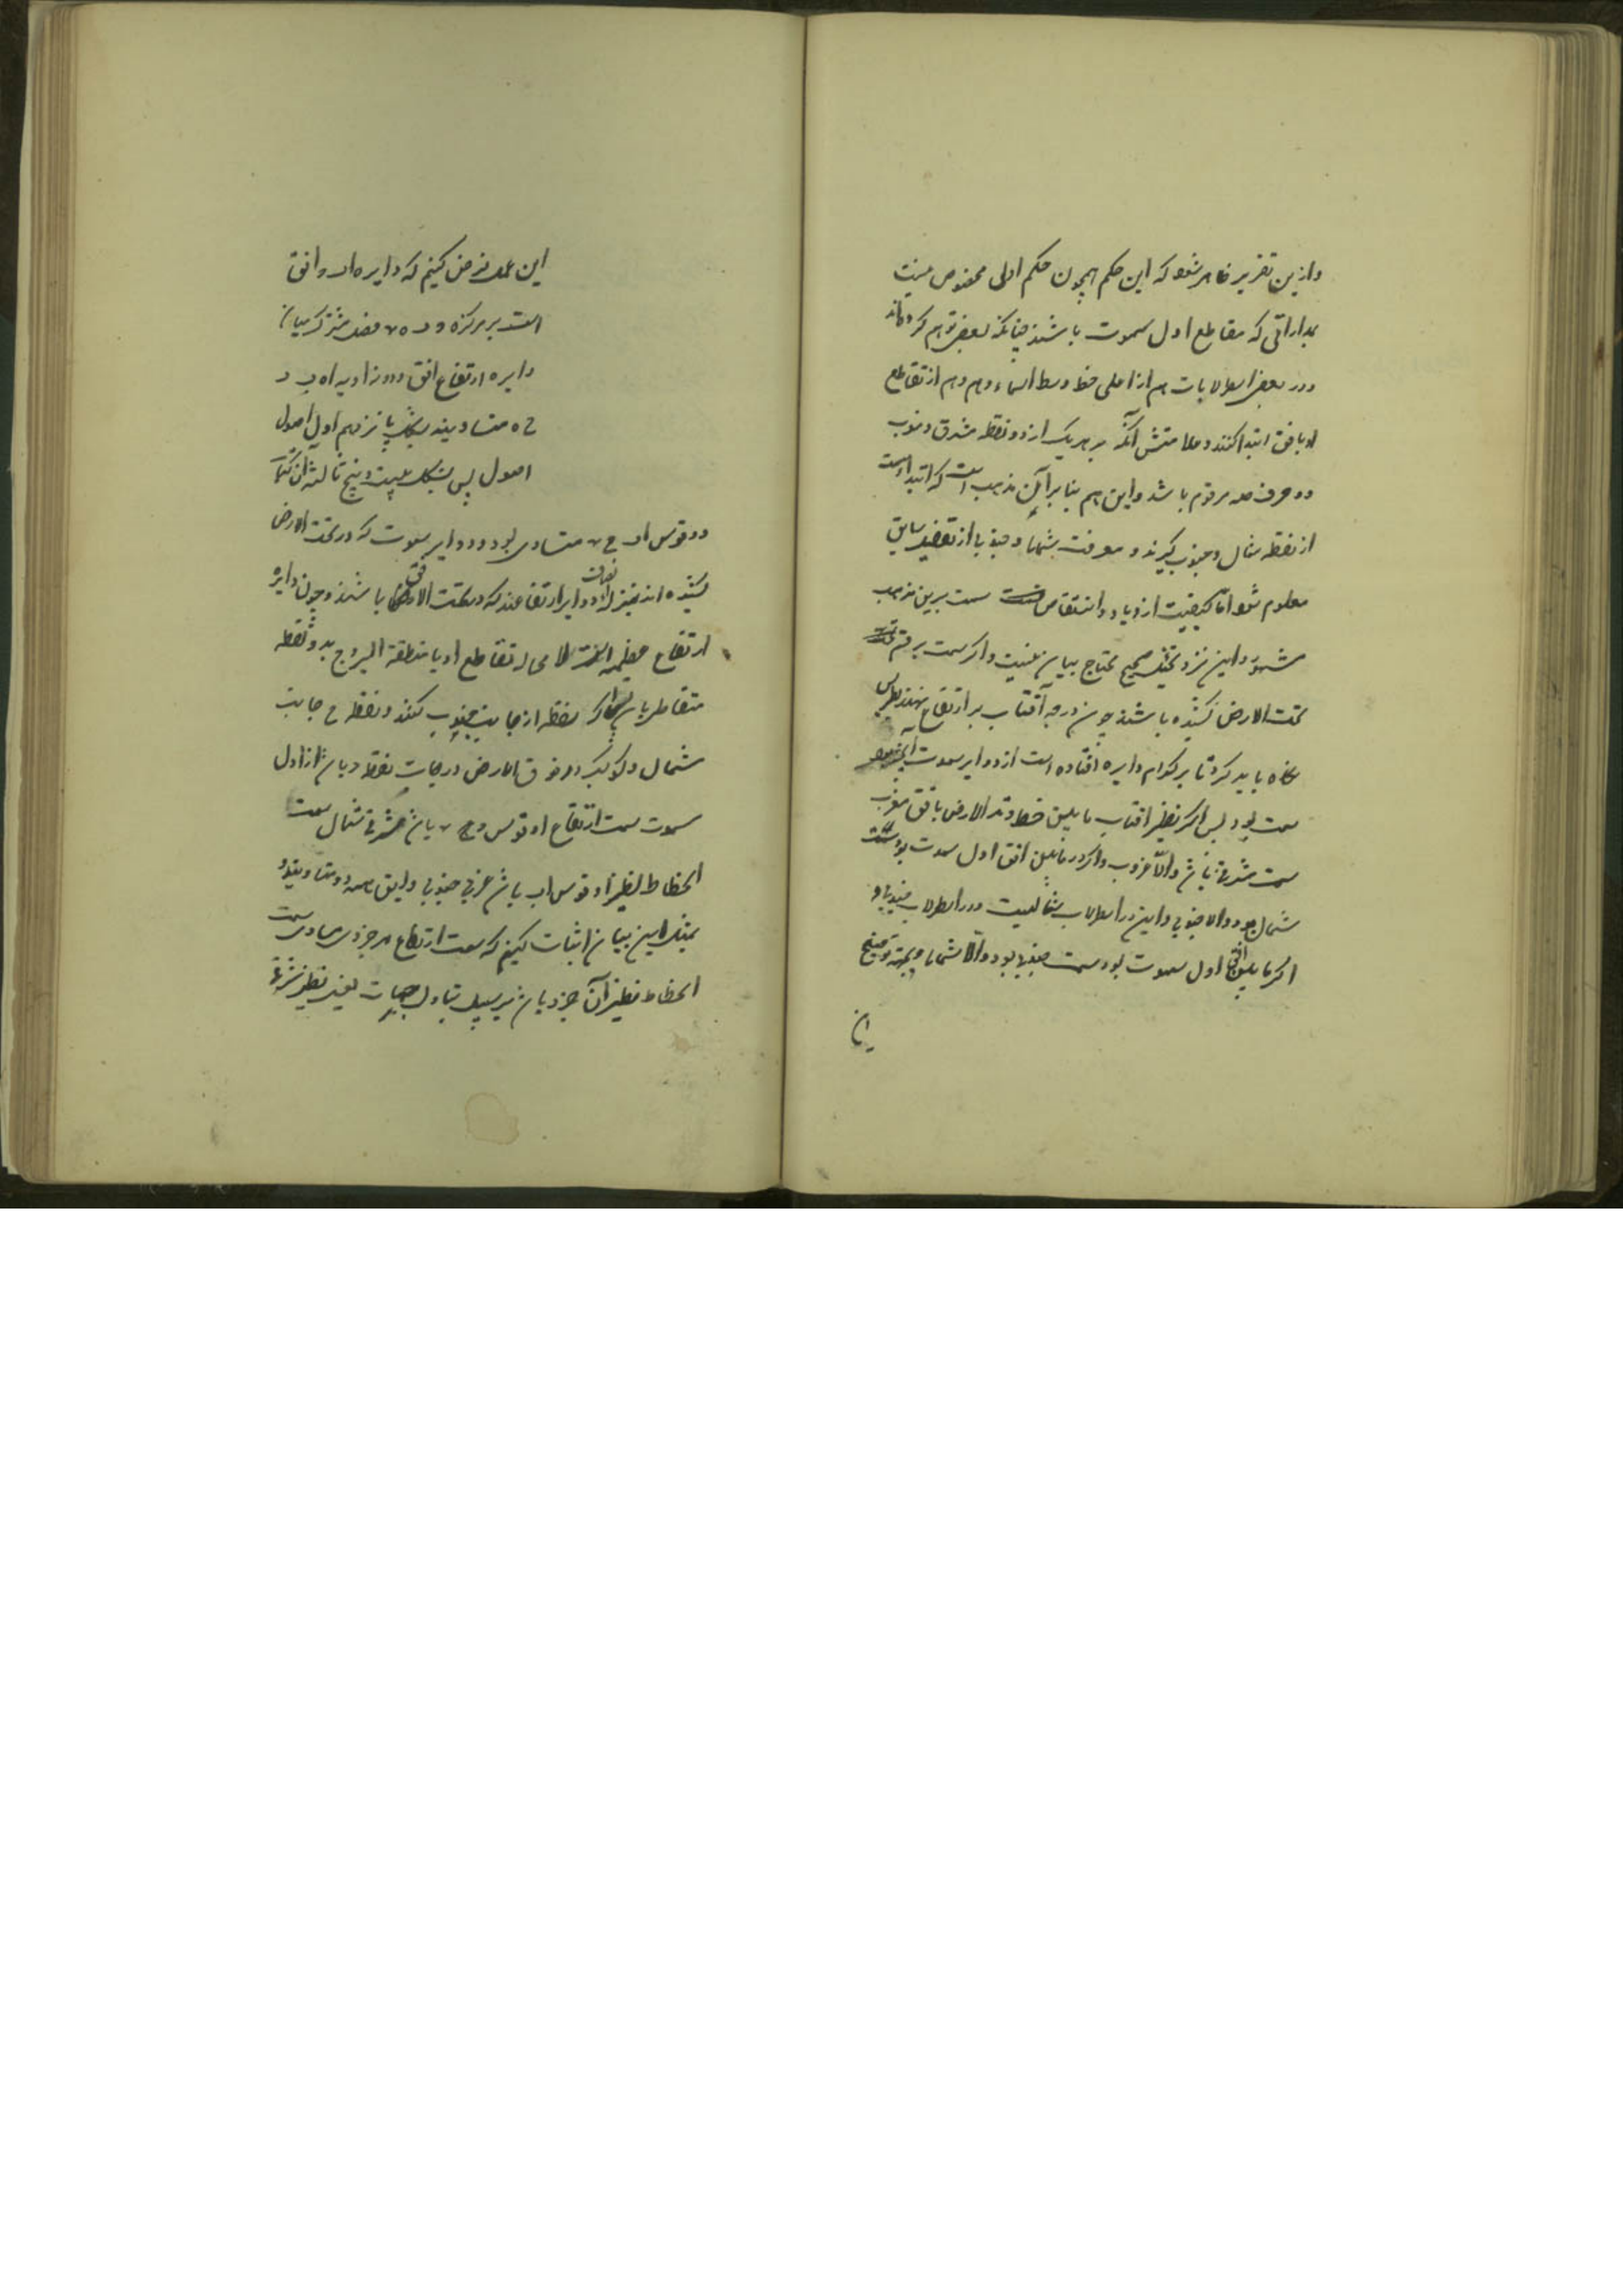 وازین تقریر ظاهر شود که این حکم همچون حکم اولی مخصوص نیست
بمداراتی که مقاطع اول سموت باشند چنانکه بعضی توهم کرده‌اند
ودر بعض اسطرلابات هم از اعلی خط وسط السماء وهم از تقاطع
او بافق ابتدا کنند وعلامتش آنکه بر هریک از دو نقطه مشرق ومغرب
دو حرف صه مرقوم باشد واین هم بنا بر آن مذهب است که ابتدا سمت
از نقطه شمال وجنوب گیرند ومعرفت شمالی وجنوبی از تفصیل سابق
معلوم شود اما کیفیت ازدیاد وانتقاص سمت برین مذهب
مشهور واین نزد تخیل صحیح محتاج ببیان نیست واگر سمت بر قسم
تحت الارض کشیده باشند چون درجه آفتاب بر ارتفاع نهند نظیرش
نگاه باید کرد تا بر کدام دایره افتاده است از دوایر سموت آنچه بود
سمت بود پس اگر نظیر افتاب مابین خط وتد الارض بافق مغرب
سمت شرقی باشد والا غربی واگر در مابین افق اول سموت بود سمت
شمالی بود والا جنوبی واین در اسطرلاب شمالیست ودر اسطرلاب جنوبی
اگر مابین افق اول سموت بود سمت جنوبی بود والا شمالی وبجهة توضیح
این
این عمل فرض کنیم که دایره ا ب د افق
است بر مرکز ه و د ه ب فصل مشترک میان
دایره ارتفاع افق ودو زاویه ا ه ب د
ح ه متساویند بشکل پانزدهم اول اصول
اصول پس بشکل بیست وپنج ثالثه آن کتاب
دو قوس ا ب ح د متساوی بود ودوایر سموت که در تحت الارض
کشیده اند بمنزله دوایر ارتفاعند که در تحت الافق باشند وچون دایره
ارتفاع عظیمه است لا محاله تقاطع او با منطقة البروج بدو نقطه
متقاطر باشد پس اگر نقطه از جانب جنوب کنند ونقطه ح جانب
شمال وکوکب در فوق الارض در جانب نقطه د باشد از اول
سموت سمت ارتفاع او قوس د ح باشد شرقی شمالی سمت
انحطاط نظیر او قوس ا ب باشد غربی جنوبی واین هر دو متساویند و
بمثل این بیان اثبات کنیم که سمت ارتفاع هر جزوی مساوی سمت
انحطاط نظیر آن جزو باشد بر سبیل تبادل جهات یعنی نظیر شرقی